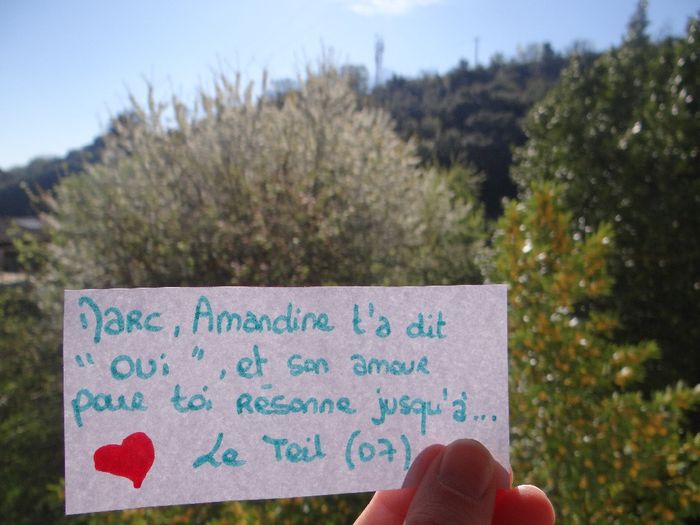 Marc, Amandine t'a dit
"oui", et son amour
pour toi résonne jusqu'à...
Le Teil (07)